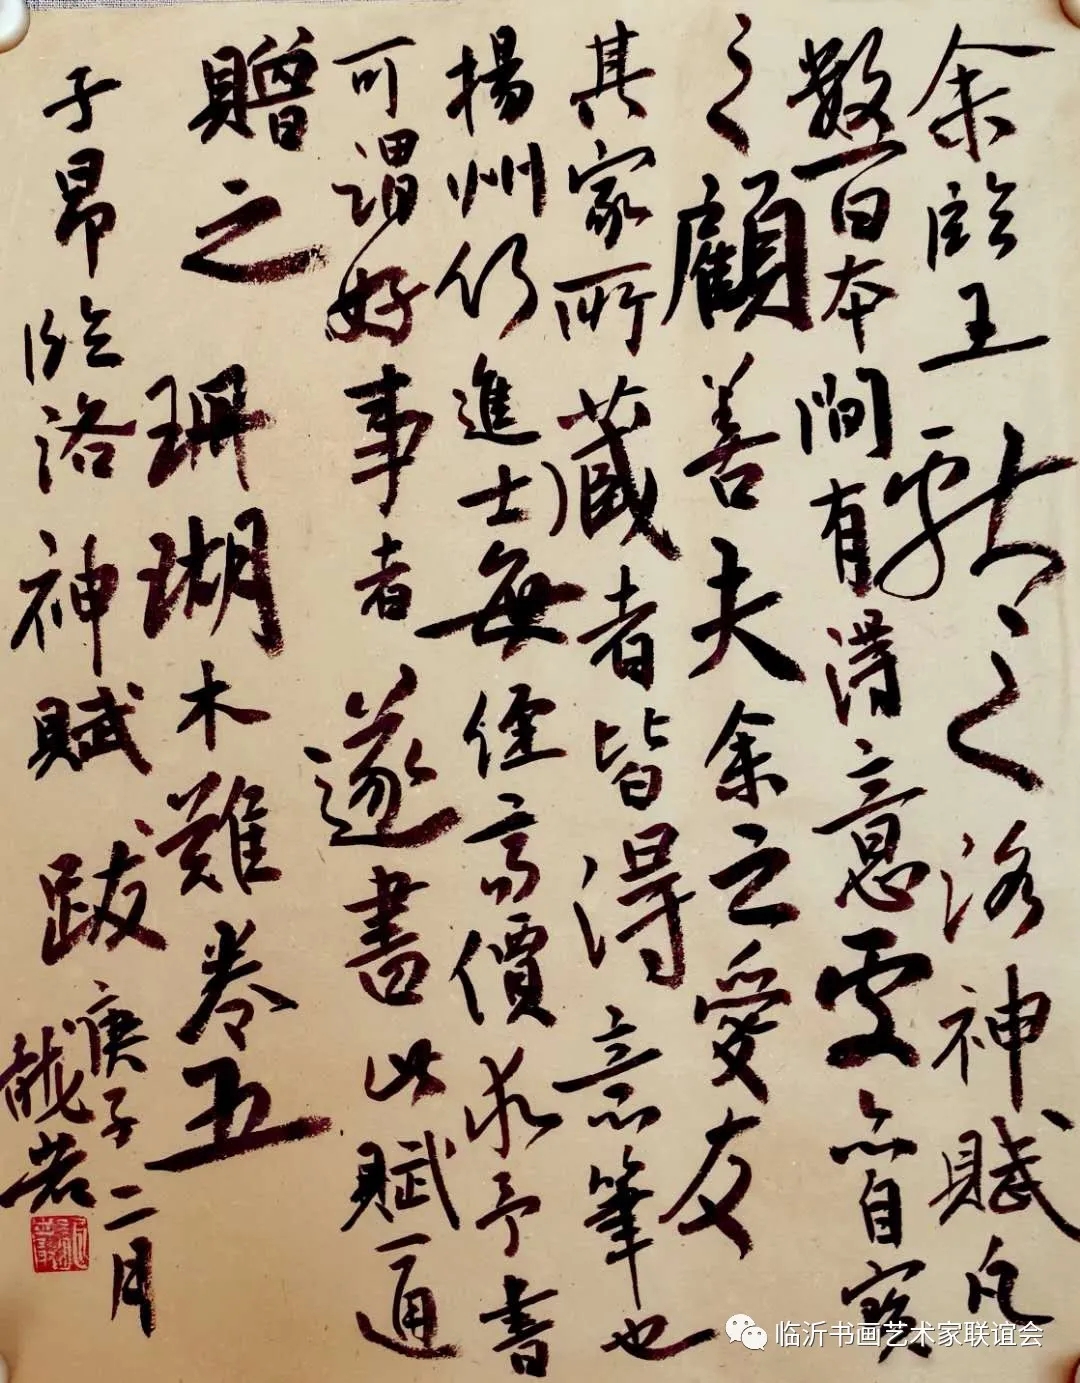 余临王献之洛神赋凡
数百本间有得意处亦自宝
之顾善夫余之爱友
其家所藏者皆得意笔也
揚州行進士每經高價求予書
可謂好事者遂書此賦一通
贈之 珊瑚木難卷五
子昂临洛神賦跋 庚子二月
临沂书画艺术家联谊会